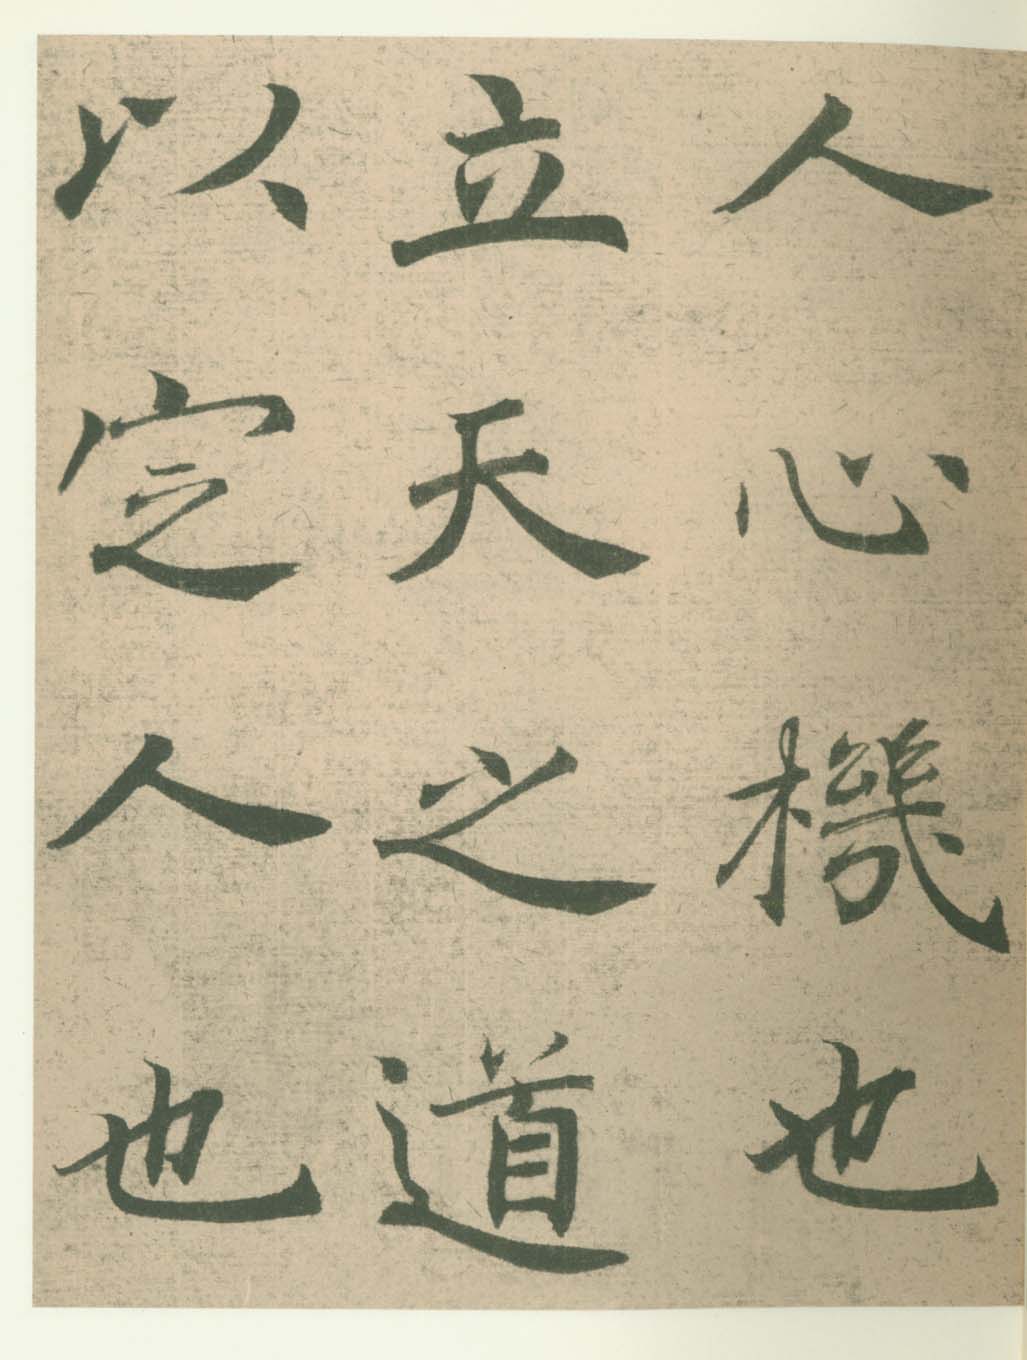 人心機也
立天之道
以定人也